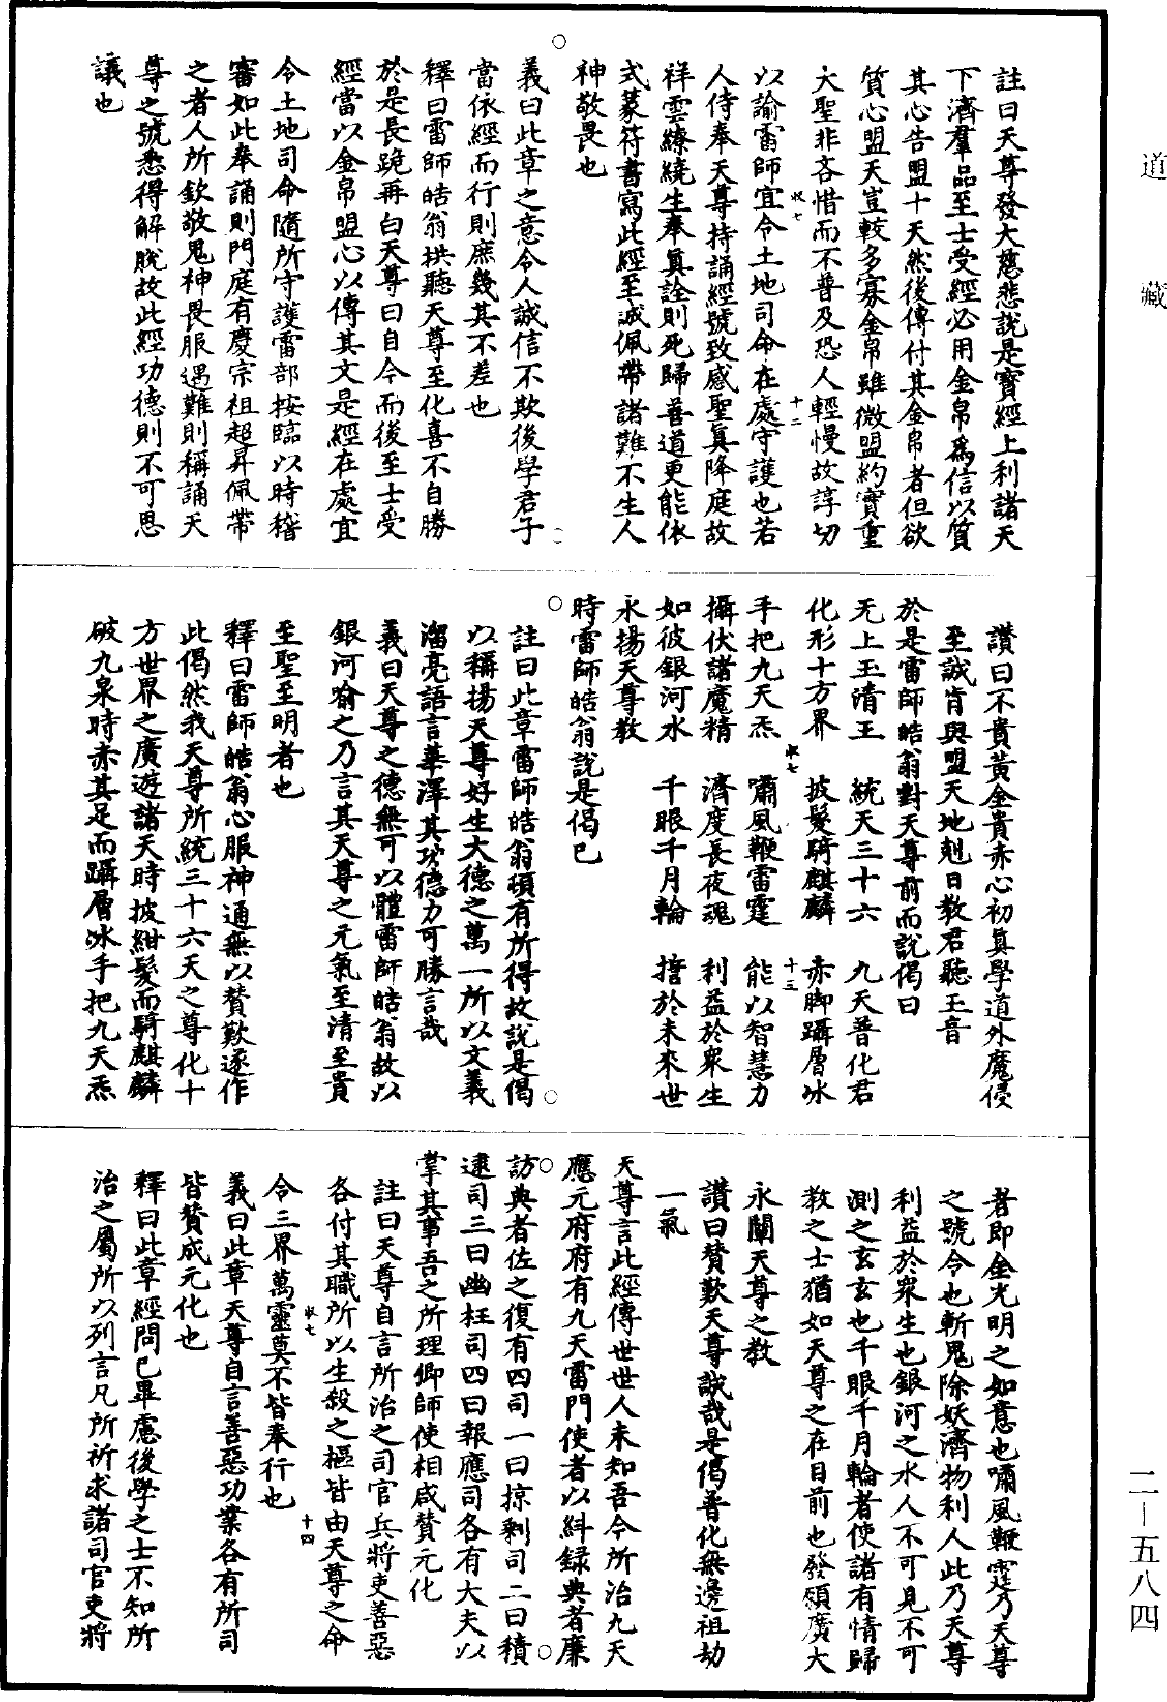 道藏
註曰天尊發大慈悲說是寶經上利諸天
下濟羣品至士受經必用金帛爲信以質
其心告盟十天然後傳付其金帛者但欲
質心盟天豈較多寡金帛雖微盟約實重
大聖非吝惜而不普及恐人輕慢故諄切
以諭雷師宜令土地司命在處守護也若
收七 十二
人侍奉天尊持誦經號致感聖眞降庭故
祥雲繚繞生奉眞詮則死歸善道更能依
式篆符書寫此經至誠佩帶諸難不生人
神敬畏也
義曰此章之意令人誠信不欺後學君子
當依經而行則庶幾其不差也
釋曰雷師皓翁拱聽天尊至化喜不自勝
於是長跪再白天尊曰自今而後至士受
經當以金帛盟心以傳其文是經在處宜
令土地司命隨所守護雷部按臨以時稽
審如此奉誦則門庭有慶宗祖超昇佩帶
之者人所欽敬鬼神畏服遇難則稱誦天
尊之號悉得解脫故此經功德則不可思
議也
讚曰不貴黃金貴赤心初眞學道外魔侵
至誠肯與盟天地剋日敎君聽玉音
於是雷師皓翁對天尊前而說偈曰
无上玉清王 統天三十六 九天普化君
化形十方界 披髮騎麒麟 赤脚躡層冰
收七 十三
手把九天炁 嘯風鞭雷霆 能以智慧力
攝伏諸魔精 濟度長夜魂 利益於衆生
如彼銀河水 千眼千月輪 誓於未來世
永揚天尊敎
時雷師皓翁說是偈已
註曰此章雷師皓翁頓有所得故說是偈
以稱揚天尊好生大德之萬一所以文義
溜亮語言華澤其功德力可勝言哉
義曰天尊之德無可以體雷師皓翁故以
銀河喻之乃言其天尊之元氣至清至貴
至聖至明者也
釋曰雷師皓翁心服神通無以贊歎遂作
此偈然我天尊所統三十六天之尊化十
方世界之廣遊諸天時披紺髮而騎麒麟
破九泉時赤其足而躡層冰手把九天炁
者即金光明之如意也嘯風鞭霆乃天尊
之號令也斬鬼除妖濟物利人此乃天尊
利益於衆生也銀河之水人不可見不可
測之玄玄也千眼千月輪者使諸有情歸
敎之士猶如天尊之在目前也發願廣大
永闡天尊之敎
讚曰贊歎天尊誠哉是偈普化無邊祖劫
一氣
天尊言此經傳世世人未知吾今所治九天
應元府府有九天雷門使者以糾錄典者廉
訪典者佐之復有四司一曰掠剩司二曰積
逮司三曰幽枉司四曰報應司各有大夫以
掌其事吾之所理卿師使相咸贊元化
註曰天尊自言所治之司官兵將吏善惡
各付其職所以生殺之樞皆由天尊之命
收七 十四
令三界萬靈莫不皆奉行也
義曰此章天尊自言善惡功業各有所司
皆贊成元化也
釋曰此章經問已畢慮後學之士不知所
治之屬所以列言凡所祈求諸司官吏將
二—五八四